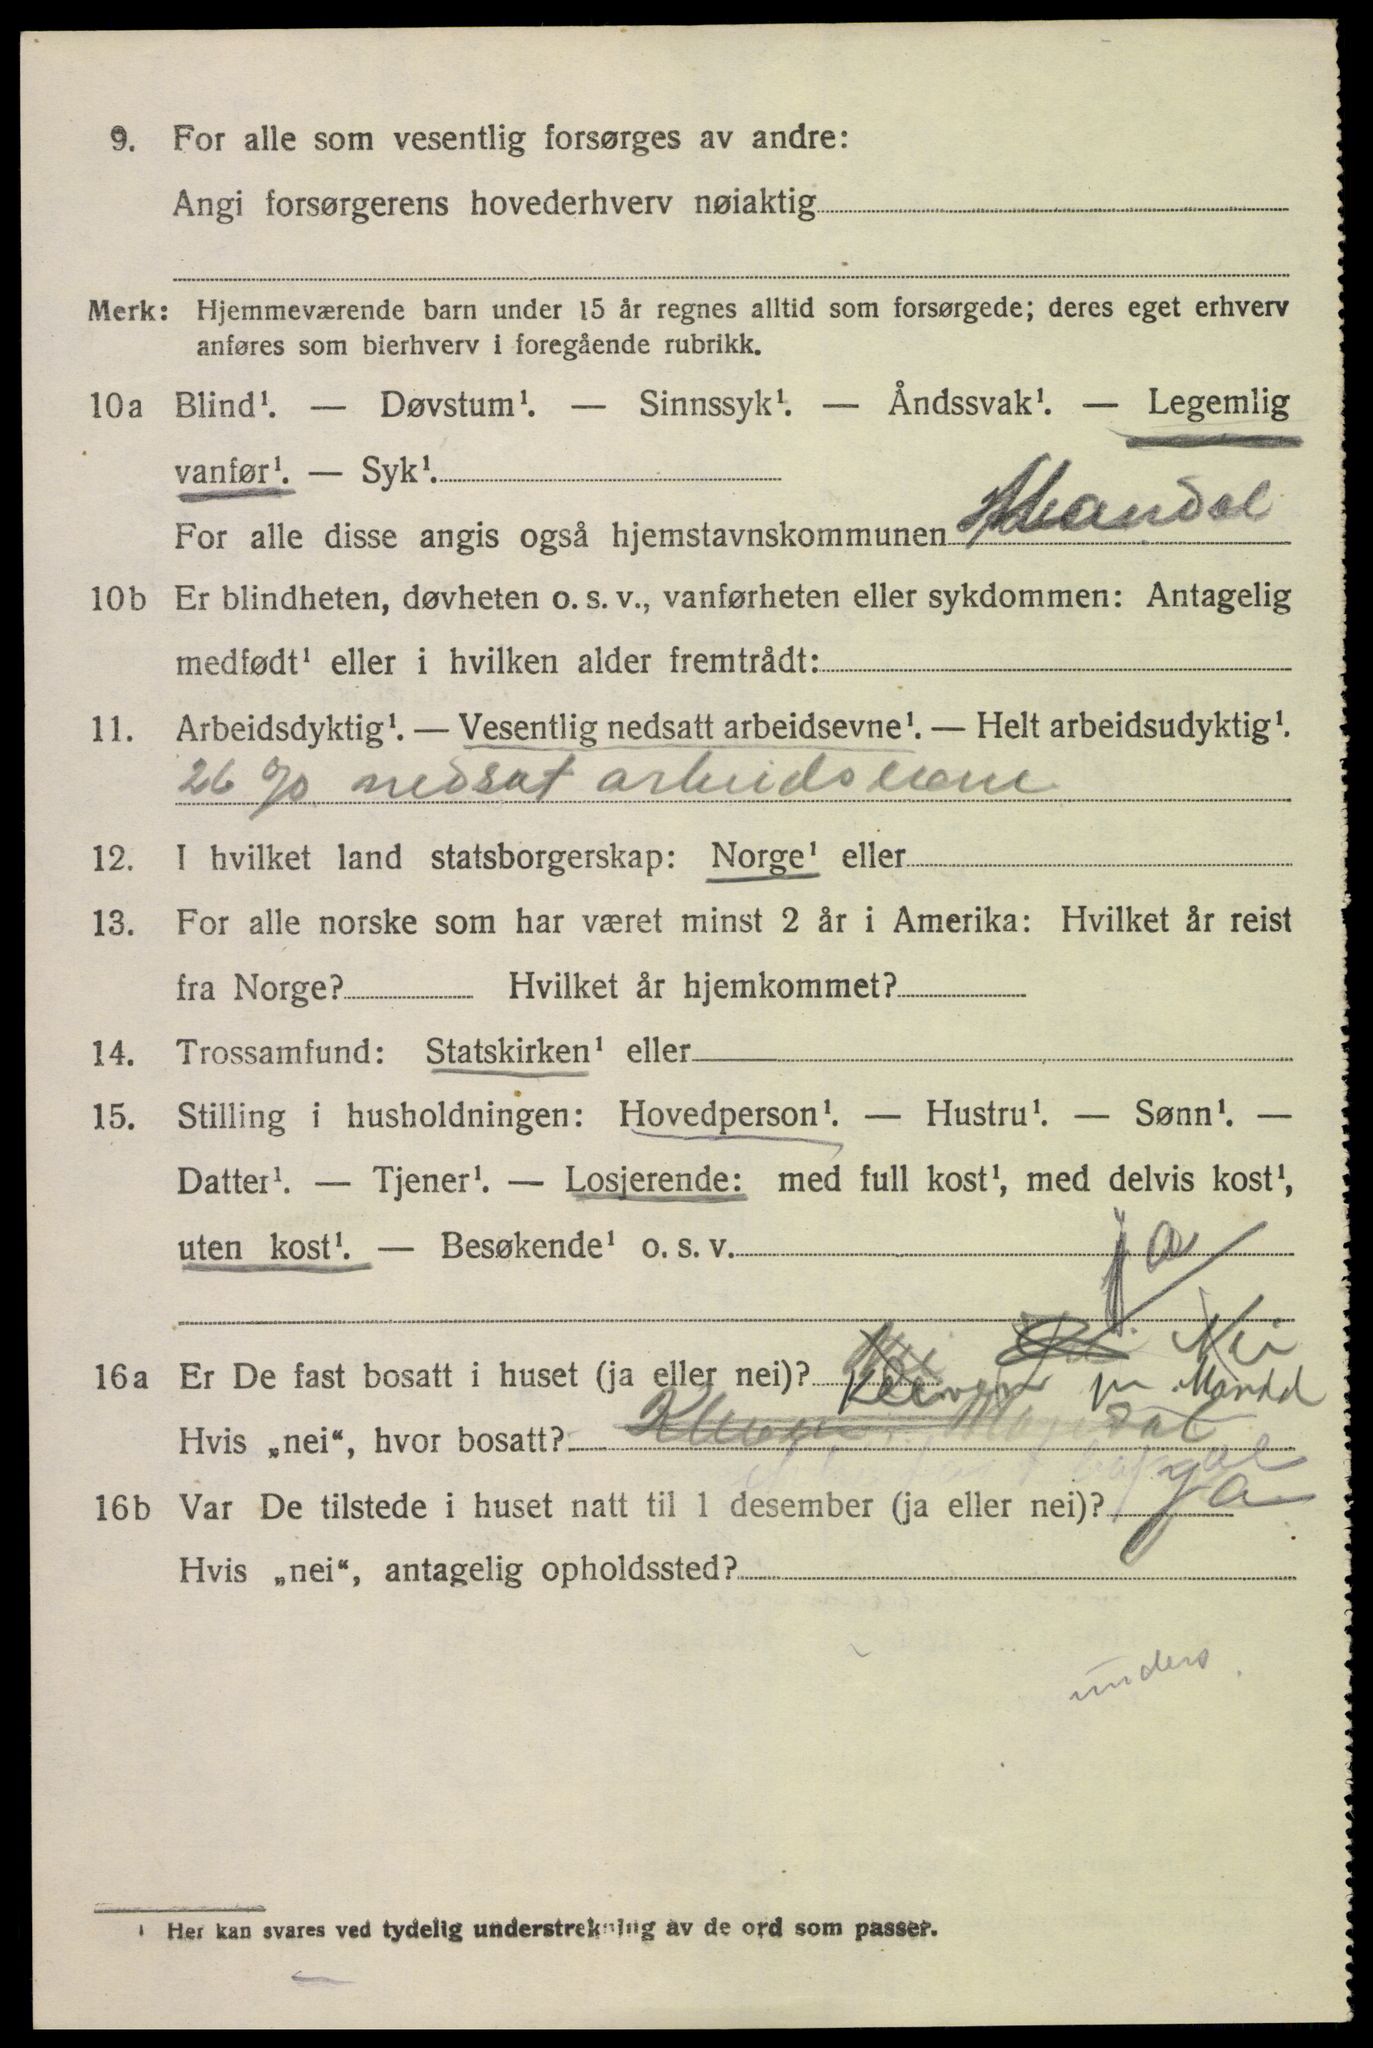 9. For alle som vesentlig forsørges av andre:
Angi forsørgerens hovederhverv nøiaktig
Merk: Hjemmeværende barn under 15 år regnes alltid som forsørgede; deres eget erhverv
anføres som bierhverv i foregående rubrikk.
10a Blind¹. — Døvstum¹. — Sinnssyk¹. — Åndssvak¹. — Legemlig
vanfør¹. — Syk¹.
For alle disse angis også hjemstavnskommunen Mandal
10b Er blindheten, døvheten o. s. v., vanførheten eller sykdommen: Antagelig
medfødt¹ eller i hvilken alder fremtrådt:
11. Arbeidsdyktig¹. — Vesentlig nedsatt arbeidsevne¹. — Helt arbeidsudyktig¹.
26 % nedsat arbeidsevne
12. I hvilket land statsborgerskap: Norge¹ eller
13. For alle norske som har været minst 2 år i Amerika: Hvilket år reist
fra Norge? Hvilket år hjemkommet?
14. Trossamfund: Statskirken¹ eller
15. Stilling i husholdningen: Hovedperson¹. — Hustru¹. — Sønn¹. —
Datter¹. — Tjener¹. — Losjerende: med full kost¹, med delvis kost¹,
uten kost¹. — Besøkende¹ o. s. v.
ja
Nei
16a Er De fast bosatt i huset (ja eller nei)? Kleven pr Mandal
Hvis „nei“, hvor bosatt? Kleven Mandal
16b Var De tilstede i huset natt til 1 desember (ja eller nei)? ja
Hvis „nei“, antagelig opholdssted?
unders.
¹ Her kan svares ved tydelig understrekning av de ord som passer.